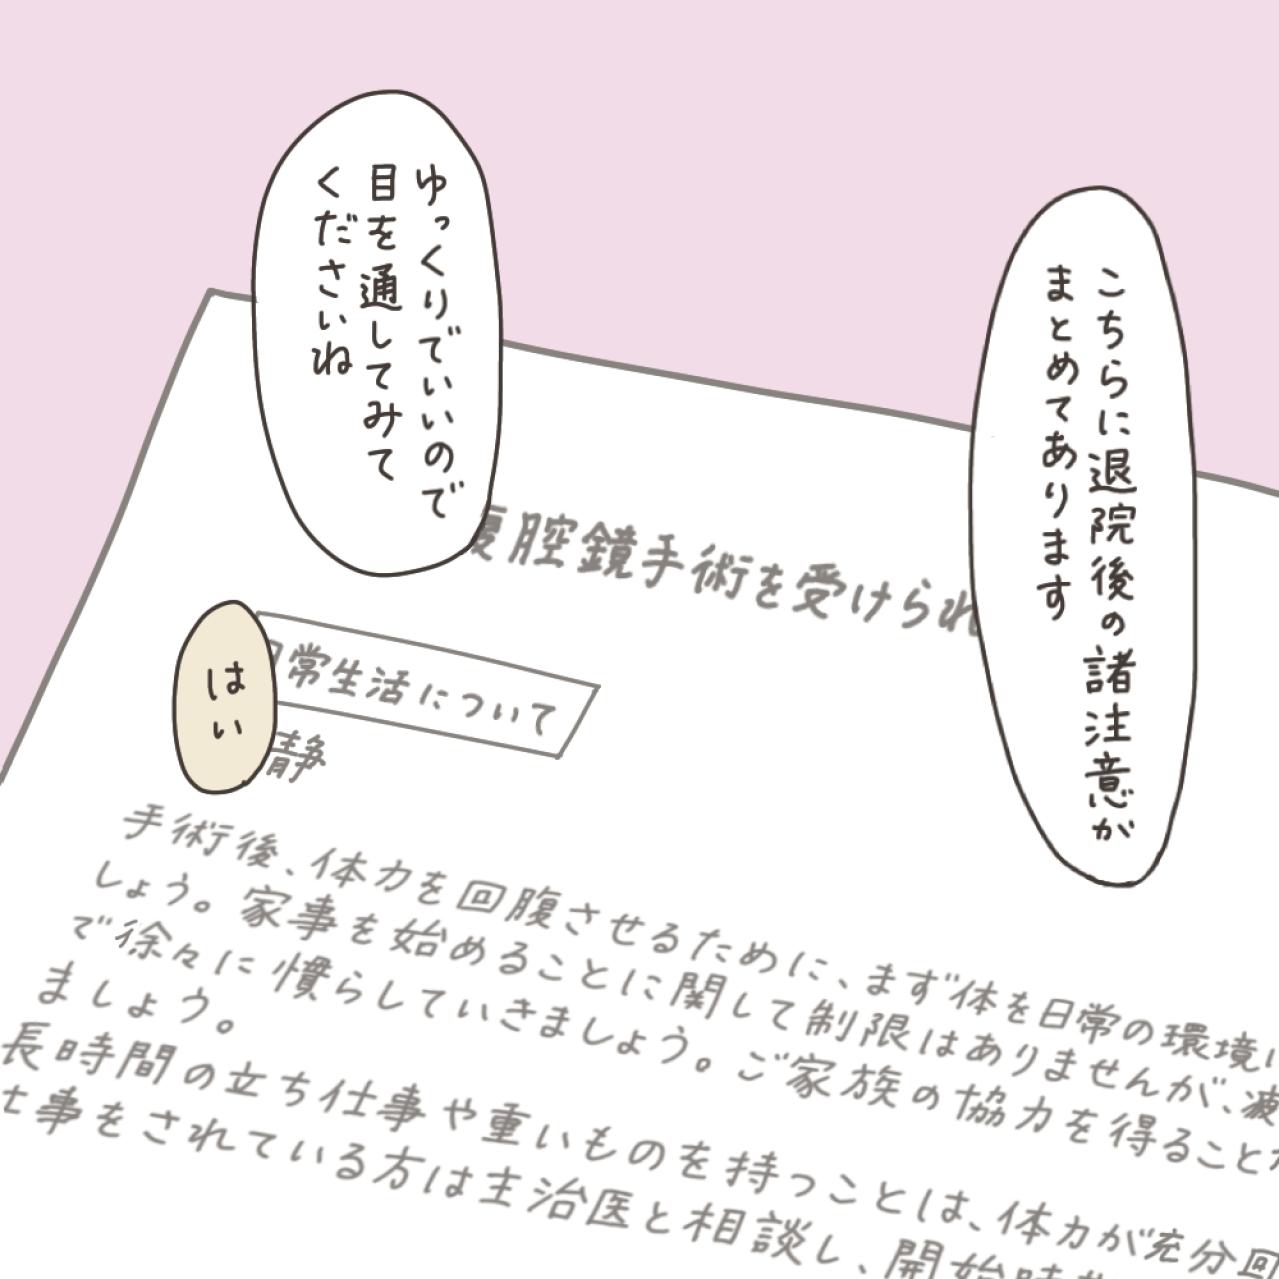 こちらに退院後の諸注意が
まとめてあります
ゆっくりでいいので
目を通してみて
くださいね
はい
腹腔鏡手術を受けられ
日常生活について
静
手術後、体力を回腹させるために、まず体を日常の環境に
しょう。家事を始めることに関して制限はありませんが、
で徐々に慣らしていきましょう。ご家族の協力を得ることが
ましょう。
長時間の立ち仕事や重いものを持つことは、体力が充分回
仕事をされている方は主治医と相談し、開始時